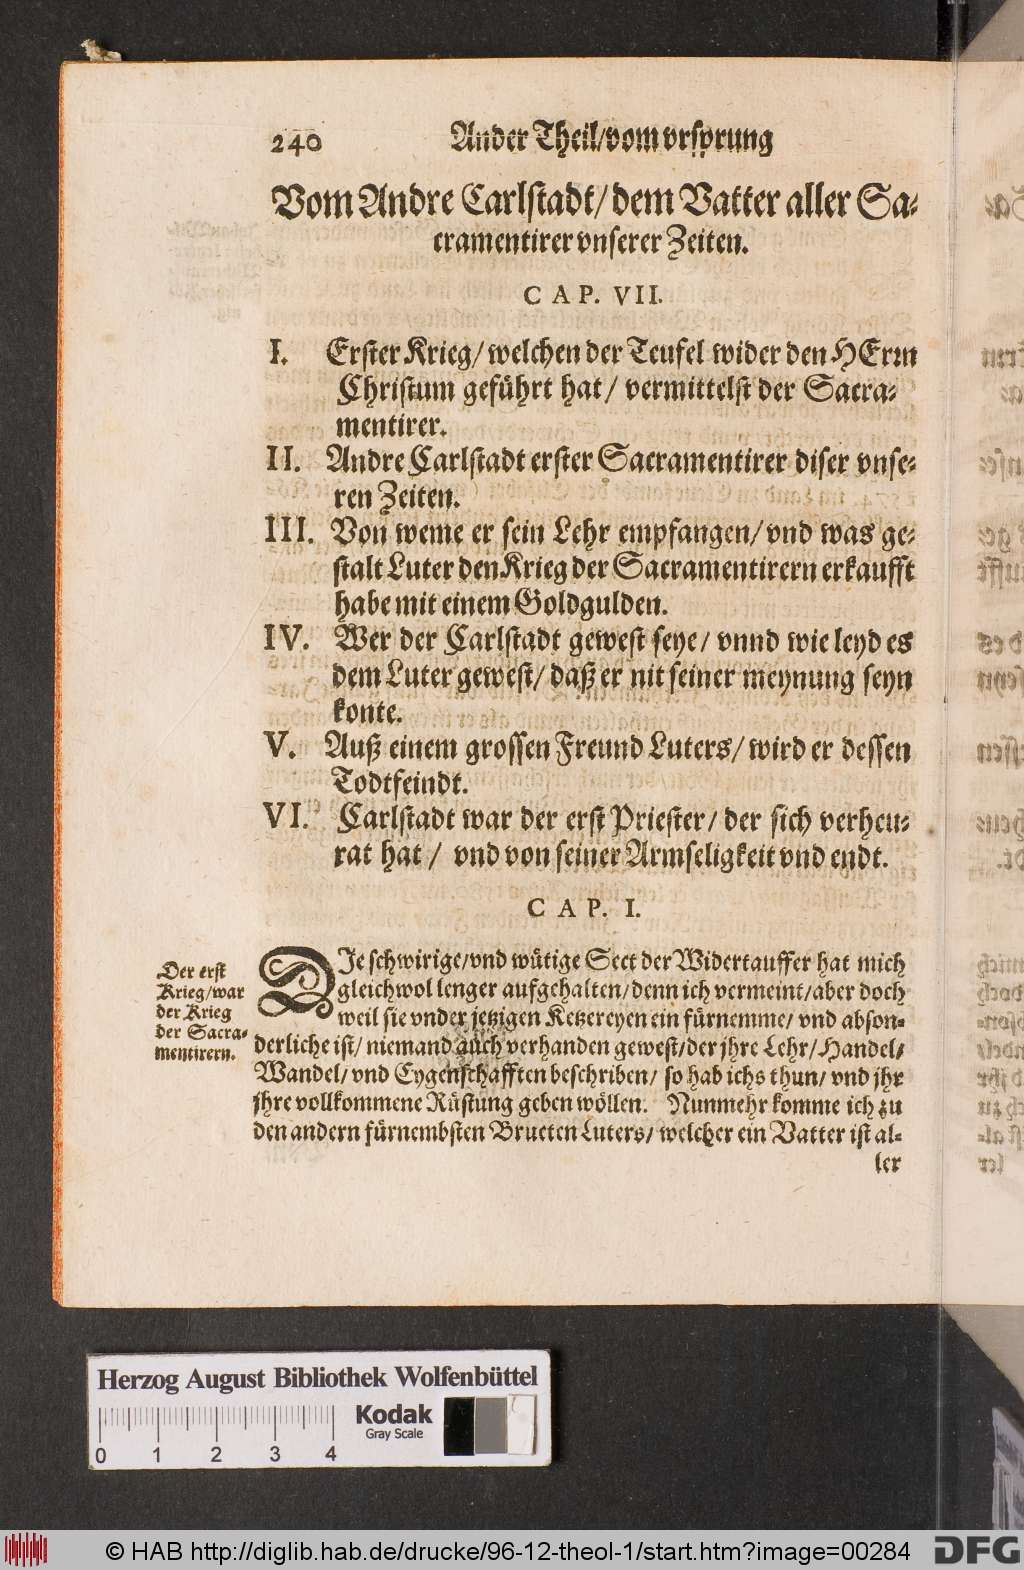 240 Ander Theil/vom vrsprung
Vom Andre Carlstadt/dem Vatter aller Sa-
cramentirer vnserer Zeiten.
CAP. VII.
I. Erster Krieg/welchen der Teufel wider den HErrn
Christum geführt hat/ vermittelst der Sacra-
mentirer.
II. Andre Carlstadt erster Sacramentirer diser vnse-
ren Zeiten.
III. Von weme er sein Lehr empfangen/vnd was ge-
stalt Luter den Krieg der Sacramentirern erkaufft
habe mit einem Goldgulden.
IV. Wer der Carlstadt gewest seye/ vnnd wie leyd es
dem Luter gewest/ daß er nit seiner meynung seyn
konte.
V. Auß einem grossen Freund Luters/ wird er dessen
Todtfeindt.
VI. Carlstadt war der erst Priester/ der sich verheu-
rat hat / vnd von seiner Armseligkeit vnd endt.
CAP. I.
Der erst
Krieg/war
der Krieg
der Sacra-
mentirern.
DIe schwirige/vnd wütige Sect der Widertauffer hat mich
gleichwol lenger aufgehalten/denn ich vermeint/aber doch
weil sie vnder jetzigen Ketzereyen ein fürnemme/ vnd abson-
derliche ist/ niemand auch verhanden gewest/der jhre Lehr/Handel/
Wandel/ vnd Eygenschafften beschriben/ so hab ichs thun/ vnd jhr
jhre vollkommene Rüstung geben wöllen. Nunmehr komme ich zu
den andern fürnembsten Brueten Luters/ welcher ein Vatter ist al-
ler
Herzog August Bibliothek Wolfenbüttel
Kodak
Gray Scale
0 1 2 3 4
© HAB http://diglib.hab.de/drucke/96-12-theol-1/start.htm?image=00284
DFG